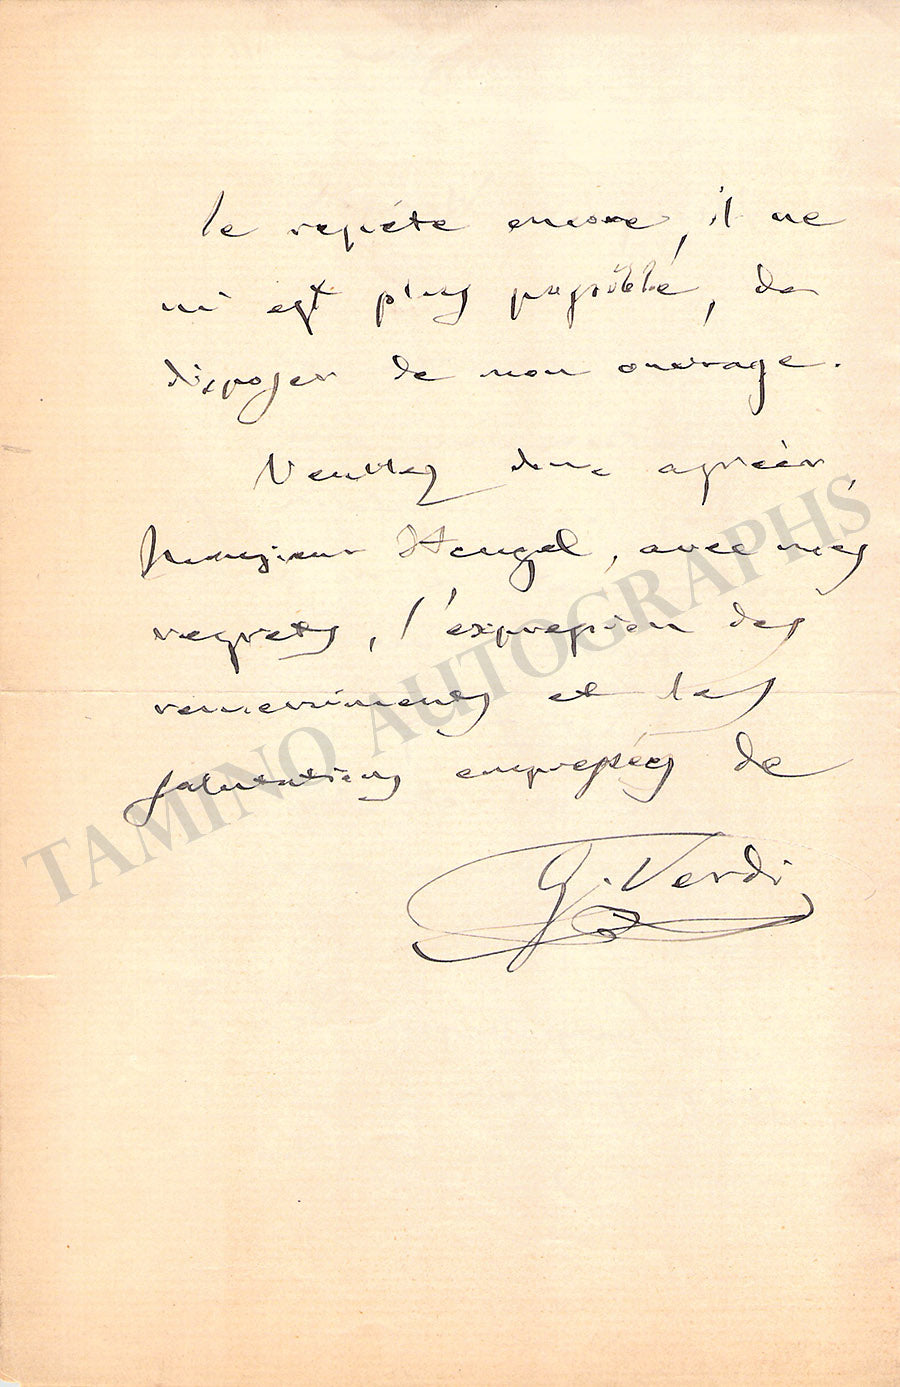 le repiéte encore, il ne
m'est plus possible, de
disposer de mon ouvrage.
Veuillez donc agréèr,
Monsieur Heugel, avec mes
regrets, l'expression des
remerciments et les
salutations empressées de
G. Verdi
TAMINO AUTOGRAPHS